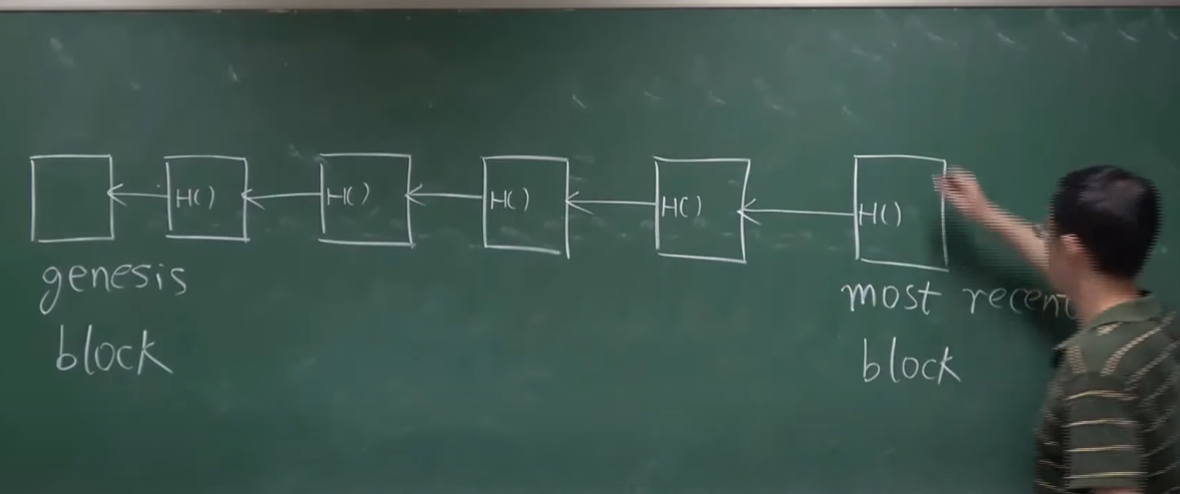 H() H() H() H() H()
genesis
block
most recent
block